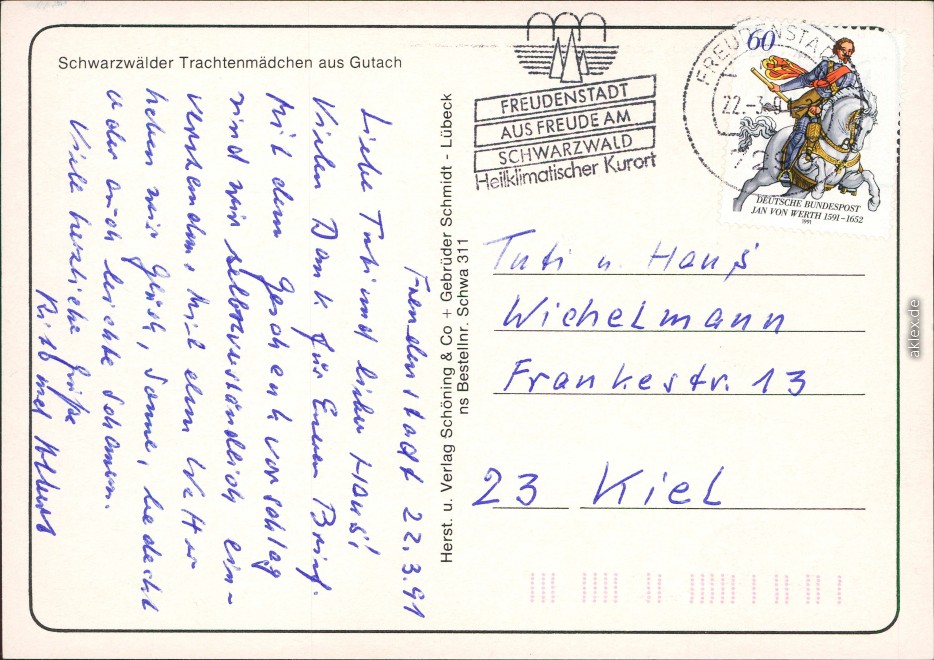 Schwarzwälder Trachtenmädchen aus Gutach
FREUDENSTADT
AUS FREUDE AM
SCHWARZWALD
Heilklimatischer Kurort
FREUDENSTADT
22.-3.9
60
DEUTSCHE BUNDESPOST
JAN VON WERTH 1591-1652
1991
Freudenstadt 22.3.91
Liebe Tuti und lieber Hans!
Vielen Dank für Euren Brief.
Mit dem Geschenkvorschlag
sind wir selbstverständlich ein-
verstanden. Mit dem Wetter
haben wir Glück, Sonne, bedeckt
oder auch leichte Schauer.
Viele herzliche Grüße
und Albert
Herst. u. Verlag Schöning & Co + Gebrüder Schmidt - Lübeck
ns Bestellnr. Schwa 311
Tuti u. Hans
Wichelmann
Frankestr. 13
23 Kiel
aklex.de